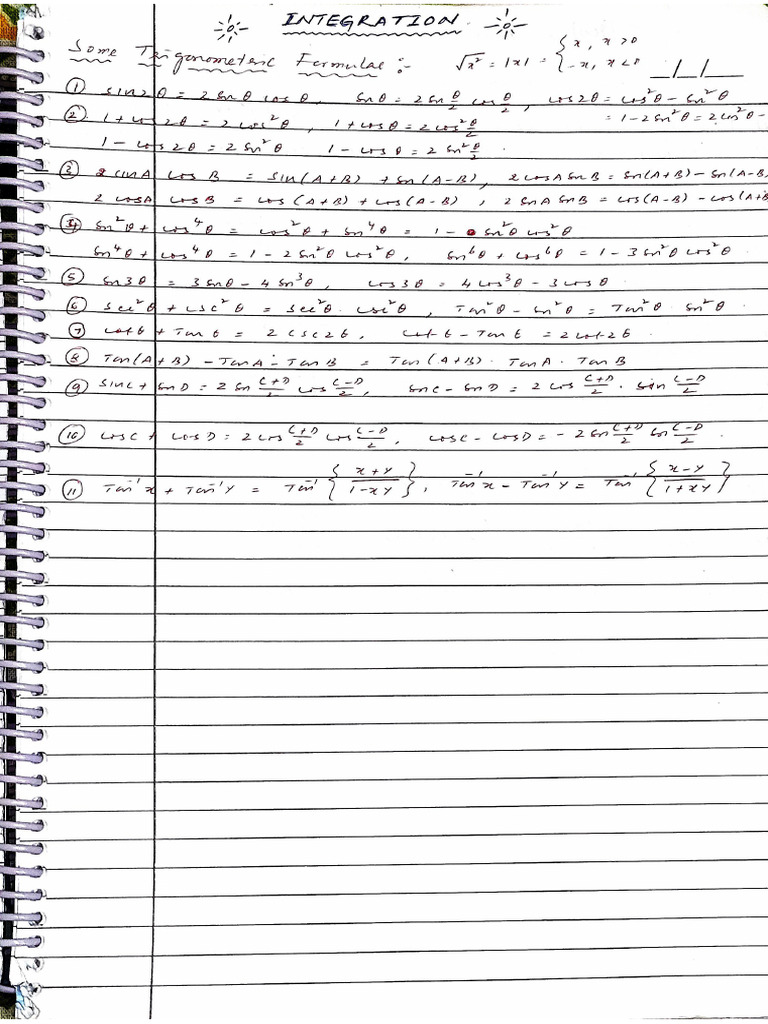 INTEGRATION
Some Trigonometric Formulae :- √x² = |x| = { x, x>0
-x, x<0
① sin2θ = 2sinθ cosθ, sinθ = 2sin θ/2 cos θ/2, cos2θ = cos²θ - sin²θ
= 1-2sin²θ = 2cos²θ -
② 1+cos2θ = 2cos²θ, 1+cosθ = 2cos² θ/2
1-cos2θ = 2sin²θ 1-cosθ = 2sin² θ/2
③ 2sinA cosB = sin(A+B) + sin(A-B), 2cosA sinB = sin(A+B) - sin(A-B)
2cosA cosB = cos(A+B) + cos(A-B), 2sinA sinB = cos(A-B) - cos(A+B
④ sin²θ + cos⁴θ = cos²θ + sin⁴θ = 1 - sin²θ cos²θ
sin⁴θ + cos⁴θ = 1-2sin²θ cos²θ, sin⁶θ + cos⁶θ = 1-3sin²θ cos²θ
⑤ sin3θ = 3sinθ - 4sin³θ, cos3θ = 4cos³θ - 3cosθ
⑥ sec²θ + csc²θ = sec²θ . csc²θ, Tan²θ - sin²θ = Tan²θ . sin²θ
⑦ cotθ + Tanθ = 2csc2θ, cotθ - Tanθ = 2cot2θ.
⑧ Tan(A+B) - TanA - TanB = Tan(A+B) . TanA . TanB
⑨ sinC + sinD = 2sin (C+D)/2 cos (C-D)/2, sinC - sinD = 2cos (C+D)/2 . sin (C-D)/2
⑩ cosC + cosD = 2cos (C+D)/2 cos (C-D)/2, cosC - cosD = -2sin (C+D)/2 sin (C-D)/2.
⑪ Tan⁻¹x + Tan⁻¹y = Tan⁻¹ { (x+y)/(1-xy) }, Tan⁻¹x - Tan⁻¹y = Tan⁻¹ { (x-y)/(1+xy) }